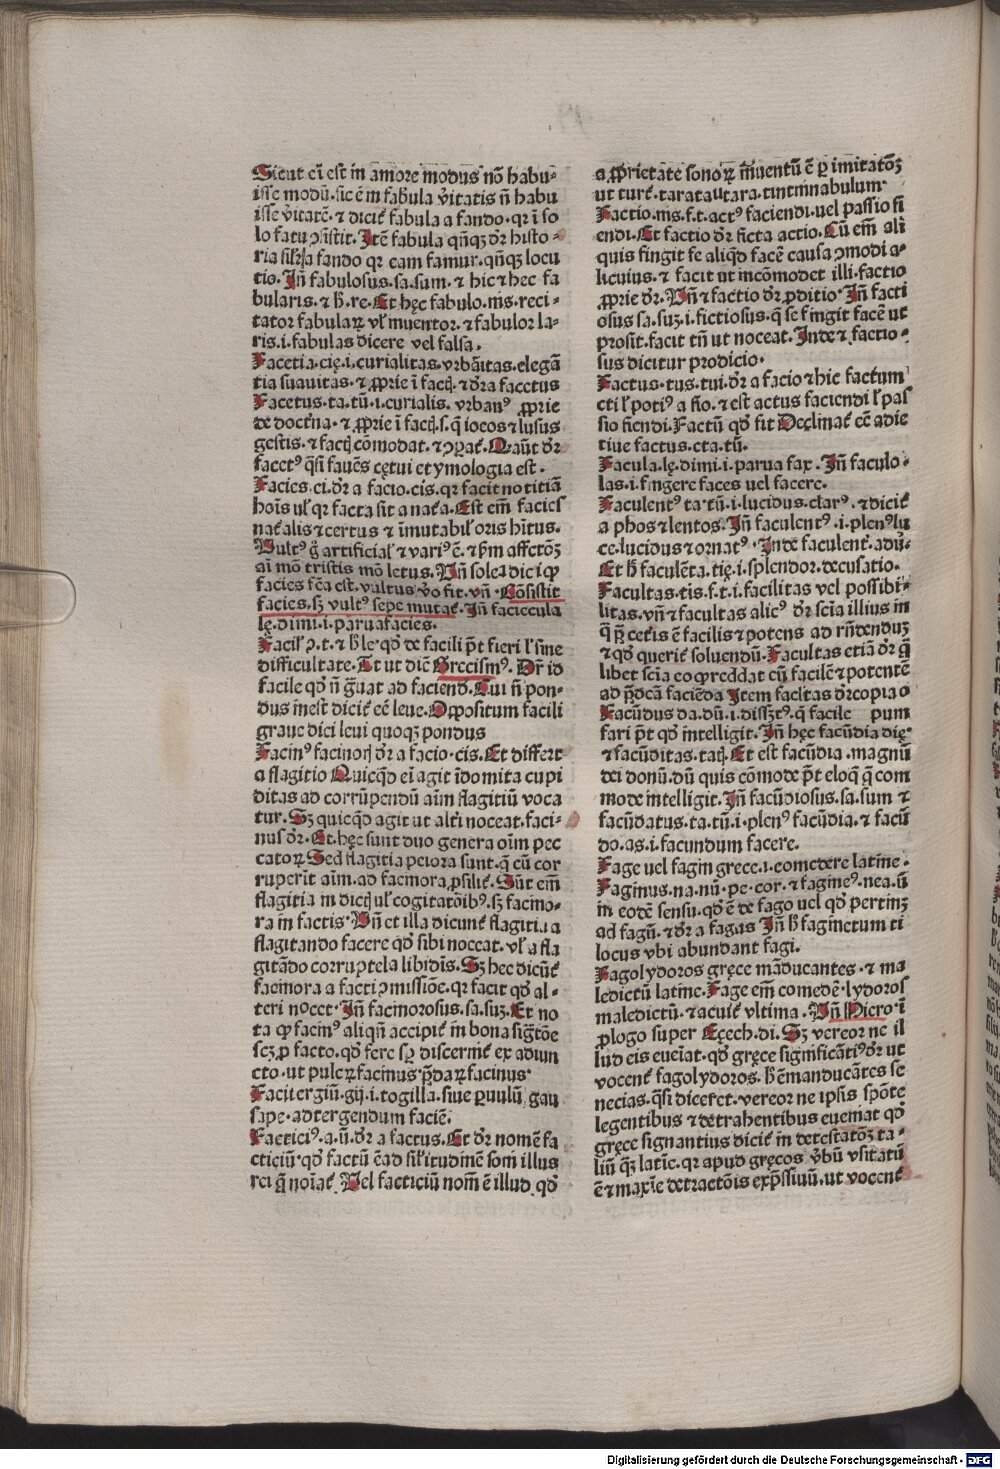 Sicut eī est in amore modus nō habu-
isse modū.sic ē in fabula v̄itatis n̄ habu
isse v̄itatē.⁊ dicit̄ fabula a fando.qr ī so
lo fatu ↄsistit.Itē fabula qn̄qꝫ dr̄ histo-
ria sil'ia fando qr eam famur.qn̄qꝫ locu
tio.Jn̄ fabulosus.sa.sum.⁊ hic ⁊ hec fa
bularis.⁊ h̄.re.Et hęc fabulo.nis.reci-
tator fabulaꝝ vl' inuentor.⁊ fabulor la-
ris.i.fabulas dicere vel falsa.
Facetia.cię.i.curialitas.vrbāitas.elegā
tia suauitas.⁊ ꝓprie ī facŋ.⁊ dr̄a facetus
Facetus.ta.tū.i.curialis.vrbanꝰ ꝓprie
de doctr̄na.⁊ ꝓprie ī facŋ.s.q̄ iocos ⁊ lusus
gestis.⁊ factŋ cōmodat.⁊ ꝯparat̄.Qn̄t dr̄
facetꝰ q̄si fauēs cętui etymologia est.
Facies.ei.dr̄ a facio.cis.qr facit notitiā
hoīs ul' qr facta sit a nat̄a.Est em̄ facies
nat̄alis ⁊ certus ⁊ īmutabil' oris hītus.
Vultꝰ ḡ artificial' ⁊ variꝰ ē.⁊ ẜm affectōꝫ
aī mō tristis mō letus.Vn̄ solea dici qꝓ
facies sc̄a est.vultus v̄o fit.vn̄.Cōsistit
facies.sꝫ vultꝰ sepe mutat̄.Jn̄ faciecula
lę.dimi.i.parua facies.
Facil' ꝯ.t.⁊ h̄ le.qd̄ de facili pt̄ fieri l' sine
difficultate.Et ut dic̄ Grecismꝰ.Dr̄ id
facile qd̄ n̄ ḡuat ad faciend̄.Cui n̄ pon-
dus inest dicit̄ eē leue.Oppositum facili
graue dici leui quoqꝫ pondus
Facinꝰ facinoŋ dr̄ a facio.cis.Et differt
a flagitio Quicqd̄ eī agit īdomita cupi
ditas ad corrūpendū aīm flagitiū voca
tur.Sꝫ quicqd̄ agit ut alt̄i noceat.faci-
nus dr̄.Et hęc sunt duo genera oīm pec
catoꝝ Sed flagitia peiora sunt.q̄ cū cor
ruperit aīm.ad facinora ꝓsilit̄.Sūt em̄
flagitia in dictŋ ul' cogitatōibꝰ.sꝫ facino-
ra in factis.Vn̄ et illa dicunt̄ flagitia a
flagitando facere qd̄ sibi noceat.vl' a fla
gitādo corruptela libidīs.Sꝫ hec dicūt̄
facinora a facti ↄmissiōe.qr facit qd̄ al-
teri nocet.Jn̄ facinorosus.sa.suꝫ.Et no
ta ꝙ facinꝰ aliqn̄ accipit̄ in bona sigtōe
scꝫ ꝓ facto.qd̄ fere sꝑ discernit̄ ex adiun
cto.ut pulcꝝ facinus.p̄daꝝ facinus
Facitergiū.gŋ.i.togilla.siue ꝑuulū gau
sape.ad tergendum faciē.
Facticiꝰ.a.ū.dr̄ a factus.Et dr̄ nomē fa
cticiū.qd̄ factū ē ad sil'itudinē soni illius
rei q̄ noīat̄.Vel facticiū nom̄ ē illud qd̄
a ꝓprietate sonoꝝ īuentū ē ꝑ imitatōꝫ
ut turt̄.taratantara.tintinnabulum
Factio.nis.f.t.actꝰ faciendi.uel passio fi
endi.Et factio dr̄ ficta actio.Cū em̄ ali
quis fingit se aliqd̄ facē causa ꝯmodi a-
licuius.⁊ facit ut incōmodet illi.factio
ꝓprie dr̄.Vn̄ ⁊ factio dr̄ ꝓditio.Jn̄ facti
osus sa.suꝫ.i.fictiosus.q̄ se fingit facē ut
prosit.facit tn̄ ut noceat.Inde ⁊ factio-
sus dicitur prodicio.
Factus.tus.tui.dr̄ a facio ⁊ hic factum
cti l' potiꝰ a fio.⁊ est actus faciendi l' pas
sio fiendi.Factū qd̄ fit Declinat̄ eē adie
tiue factus.cta.tū.
Facula.lę.dimi.i.parua fax.Jn̄ faculo-
las.i.fingere faces uel facere.
Faculentꝰ ta tū.i.lucidus.clarꝰ.⁊ dicit̄
a phos ⁊ lentos.Jn̄ faculentꝰ.i.plenꝰ lu
ce.lucidus ⁊ ornatꝰ.Inde faculent̄.adū.
Et h̄ faculēta.tię.i.splendor.decusatio.
Facultas.tis.f.t.i.facilitas vel possibi-
litas.vn̄ ⁊ facultas alicꝰ dr̄ scia illius in
q̄ p̄ cet̄is ē facilis ⁊ potens ad rn̄denduꝫ
⁊ qd̄ querit̄ soluendū.Facultas etiā dr̄ q̄
libet scia eo ꝙ reddat eū facilē ⁊ potentē
ad p̄dcā faciēda Item facl̄tas dr̄ copia o
Facūdus da.dū.i.dissꝫtꝰ.q̄ facile pum
fari pt̄ qd̄ intelligit.Jn̄ hęc facūdia dię
⁊ facūditas.taŋ.Et est facūdia.magnū
dei donū.dū quis cōmode pt̄ eloq̄ q̄ com
mode intelligit.Jn̄ facūdiosus.sa.sum ⁊
facūdatus.ta.tū.i.plenꝰ facūdia.⁊ facū
do.as.i.facundum facere.
Fage uel fagin grece.i.comedere latine.
Faginus.na.nū.pe.cor.⁊ fagineꝰ.nea.ū
in eodē sensu.qd̄ ē de fago uel qd̄ pertinꝫ
ad fagū.⁊ dr̄ a fagus Jn̄ h̄ faginetum ti
locus vbi abundant fagi.
Fagolydoros gręce māducantes.⁊ ma
ledictū latine.Fage em̄ comedē.lydoros
maledictū.⁊ acuit̄ vltima.Vn̄ Hiero.ī
ꝓlogo super Eęech.di.Sꝫ vereor ne il
lud eis eueīat.qd̄ gręce significātiꝰ dr̄ ut
vocent̄ fagolydoros.h̄ ē manducātes se
necias.q̄si diceret.vereor ne ipsis spōte
legentibus ⁊ detrahentibus eueniat qd̄
gręce signantius dicit̄ in detestatōꝫ ta-
liū q̄ꝫ latīe.qr apud gręcos v̄bū vsitatū
ē ⁊ maxīe detractōis exp̄ssiuū.ut vocent̄
Digitalisierung gefördert durch die Deutsche Forschungsgemeinschaft - DFG